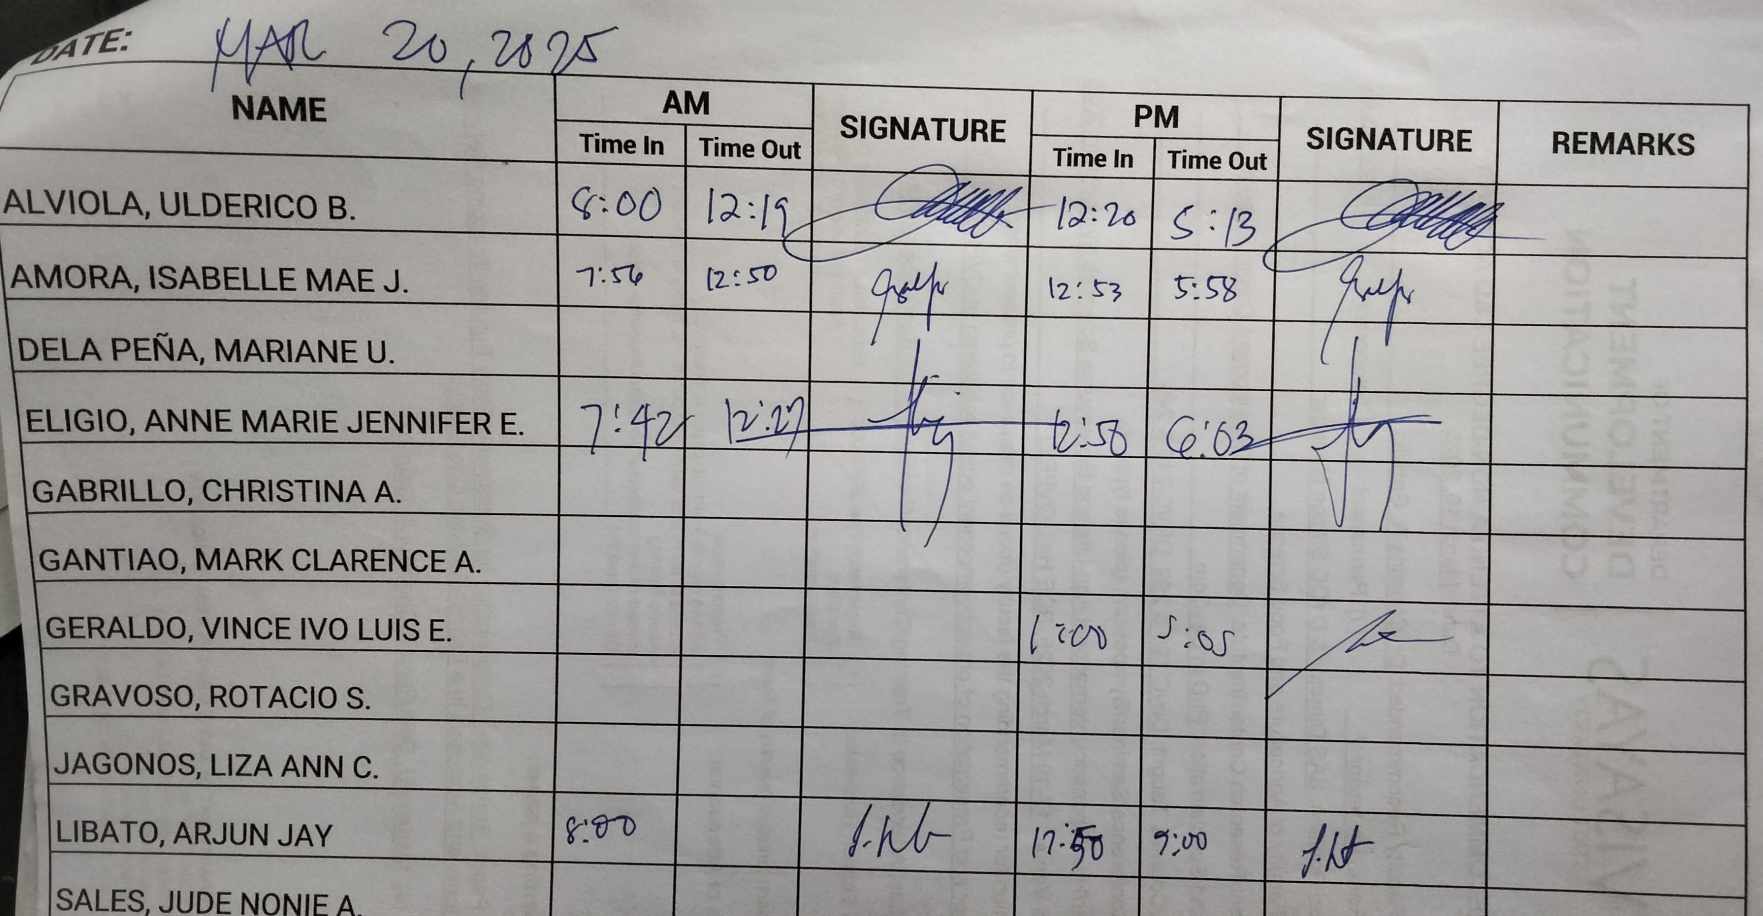 DATE: MAR 20, 2025
NAME AM SIGNATURE PM SIGNATURE REMARKS
Time In Time Out Time In Time Out
ALVIOLA, ULDERICO B. 8:00 12:19 12:20 5:13
AMORA, ISABELLE MAE J. 7:56 12:50 12:53 5:58
DELA PEÑA, MARIANE U.
ELIGIO, ANNE MARIE JENNIFER E. 7:42 12:27 12:58 6:03
GABRILLO, CHRISTINA A.
GANTIAO, MARK CLARENCE A.
GERALDO, VINCE IVO LUIS E. 1:00 5:05
GRAVOSO, ROTACIO S.
JAGONOS, LIZA ANN C.
LIBATO, ARJUN JAY 8:00 12:50 9:00
SALES, JUDE NONIE A.